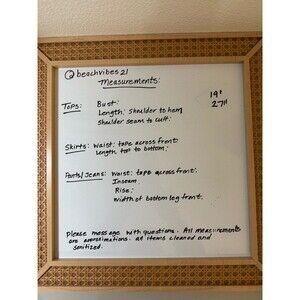 @beachvibes21
Measurements:
Tops: Bust: 19"
Length: Shoulder to hem 27"
Shoulder seam to cuff:
Skirts: Waist: tape across front
Length top to bottom:
Pants/Jeans: Waist: tape across front:
Inseam
Rise:
Width of bottom leg front:
Please message with questions. All measurements
are approximations. All items cleaned and
sanitized.